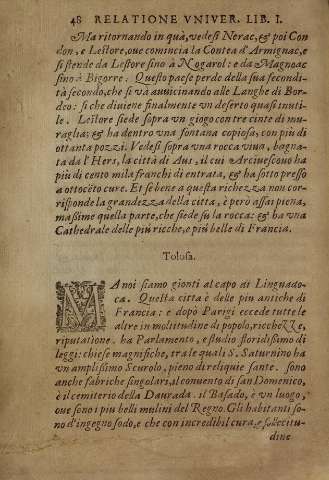 48 RELATIONE VNIVER. LIB. I.
Ma ritornando in quà, vedesi Nerac, & poi Con
don, e Lestore, oue comincia la Contea d'Armignac, e
si stende da Lestore sino à Nogarol: e da Magnoac
sino à Bigorre. Questo paese perde della sua fecondi-
tà secondo, che si và auuicinando alle Langhe di Bor-
deo: si che diuiene finalmente vn deserto quasi inuti-
le. Lestore siede sopra vn giogo con tre cinte di mu-
raglia; & ha dentro vna fontana copiosa, con più di
ottanta pozzi. Vedesi sopra vna rocca viua, bagna-
ta da l'Hers, la città di Aus, il cui Arciuescouo ha
più di cento mila franchi di entrata, & ha sotto presso
a ottocẽto cure. Et se bene a questa richezza non cor-
risponde la grandezza della citta, è però assai piena,
massime quella parte, che siede su la rocca: & ha vna
Cathedrale delle più ricche, e più belle di Francia.
Tolosa.
MA noi siamo gionti al capo di Linguado-
ca. Questa citta è delle piu antiche di
Francia: e dopò Parigi eccede tutte le
altre in moltitudine di popolo, ricchezze, e
riputatione. ha Parlamento, e studio floridissimo di
leggi: chiese magnifiche, tra le quali S. Saturnino ha
vn amplissimo Scurolo, pieno di reliquie sante. sono
anche fabriche singolari, il conuento di San Domenico,
è il cemiterio della Daurada. il Basado, è vn luogo,
oue sono i piu belli mulini del Regno. Gli habitanti so-
no d'ingegno sodo, e che con incredibil cura, e sollecitu-
dine